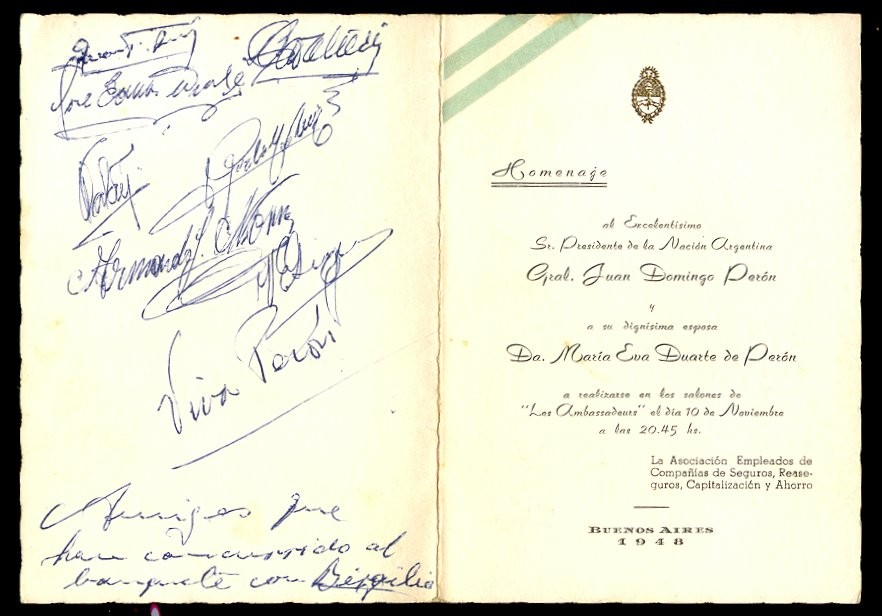 José
Armando J.
Viva Perón
Amigos que
han concurrido al
banquete con Birgilio
Homenaje
al Excelentísimo
Sr. Presidente de la Nación Argentina
Gral. Juan Domingo Perón
y
a su dignísima esposa
Da. María Eva Duarte de Perón
a realizarse en los salones de
"Les Ambassadeurs" el día 10 de Noviembre
a las 20.45 hs.
La Asociación Empleados de
Compañías de Seguros, Rease-
guros, Capitalización y Ahorro
BUENOS AIRES
1948